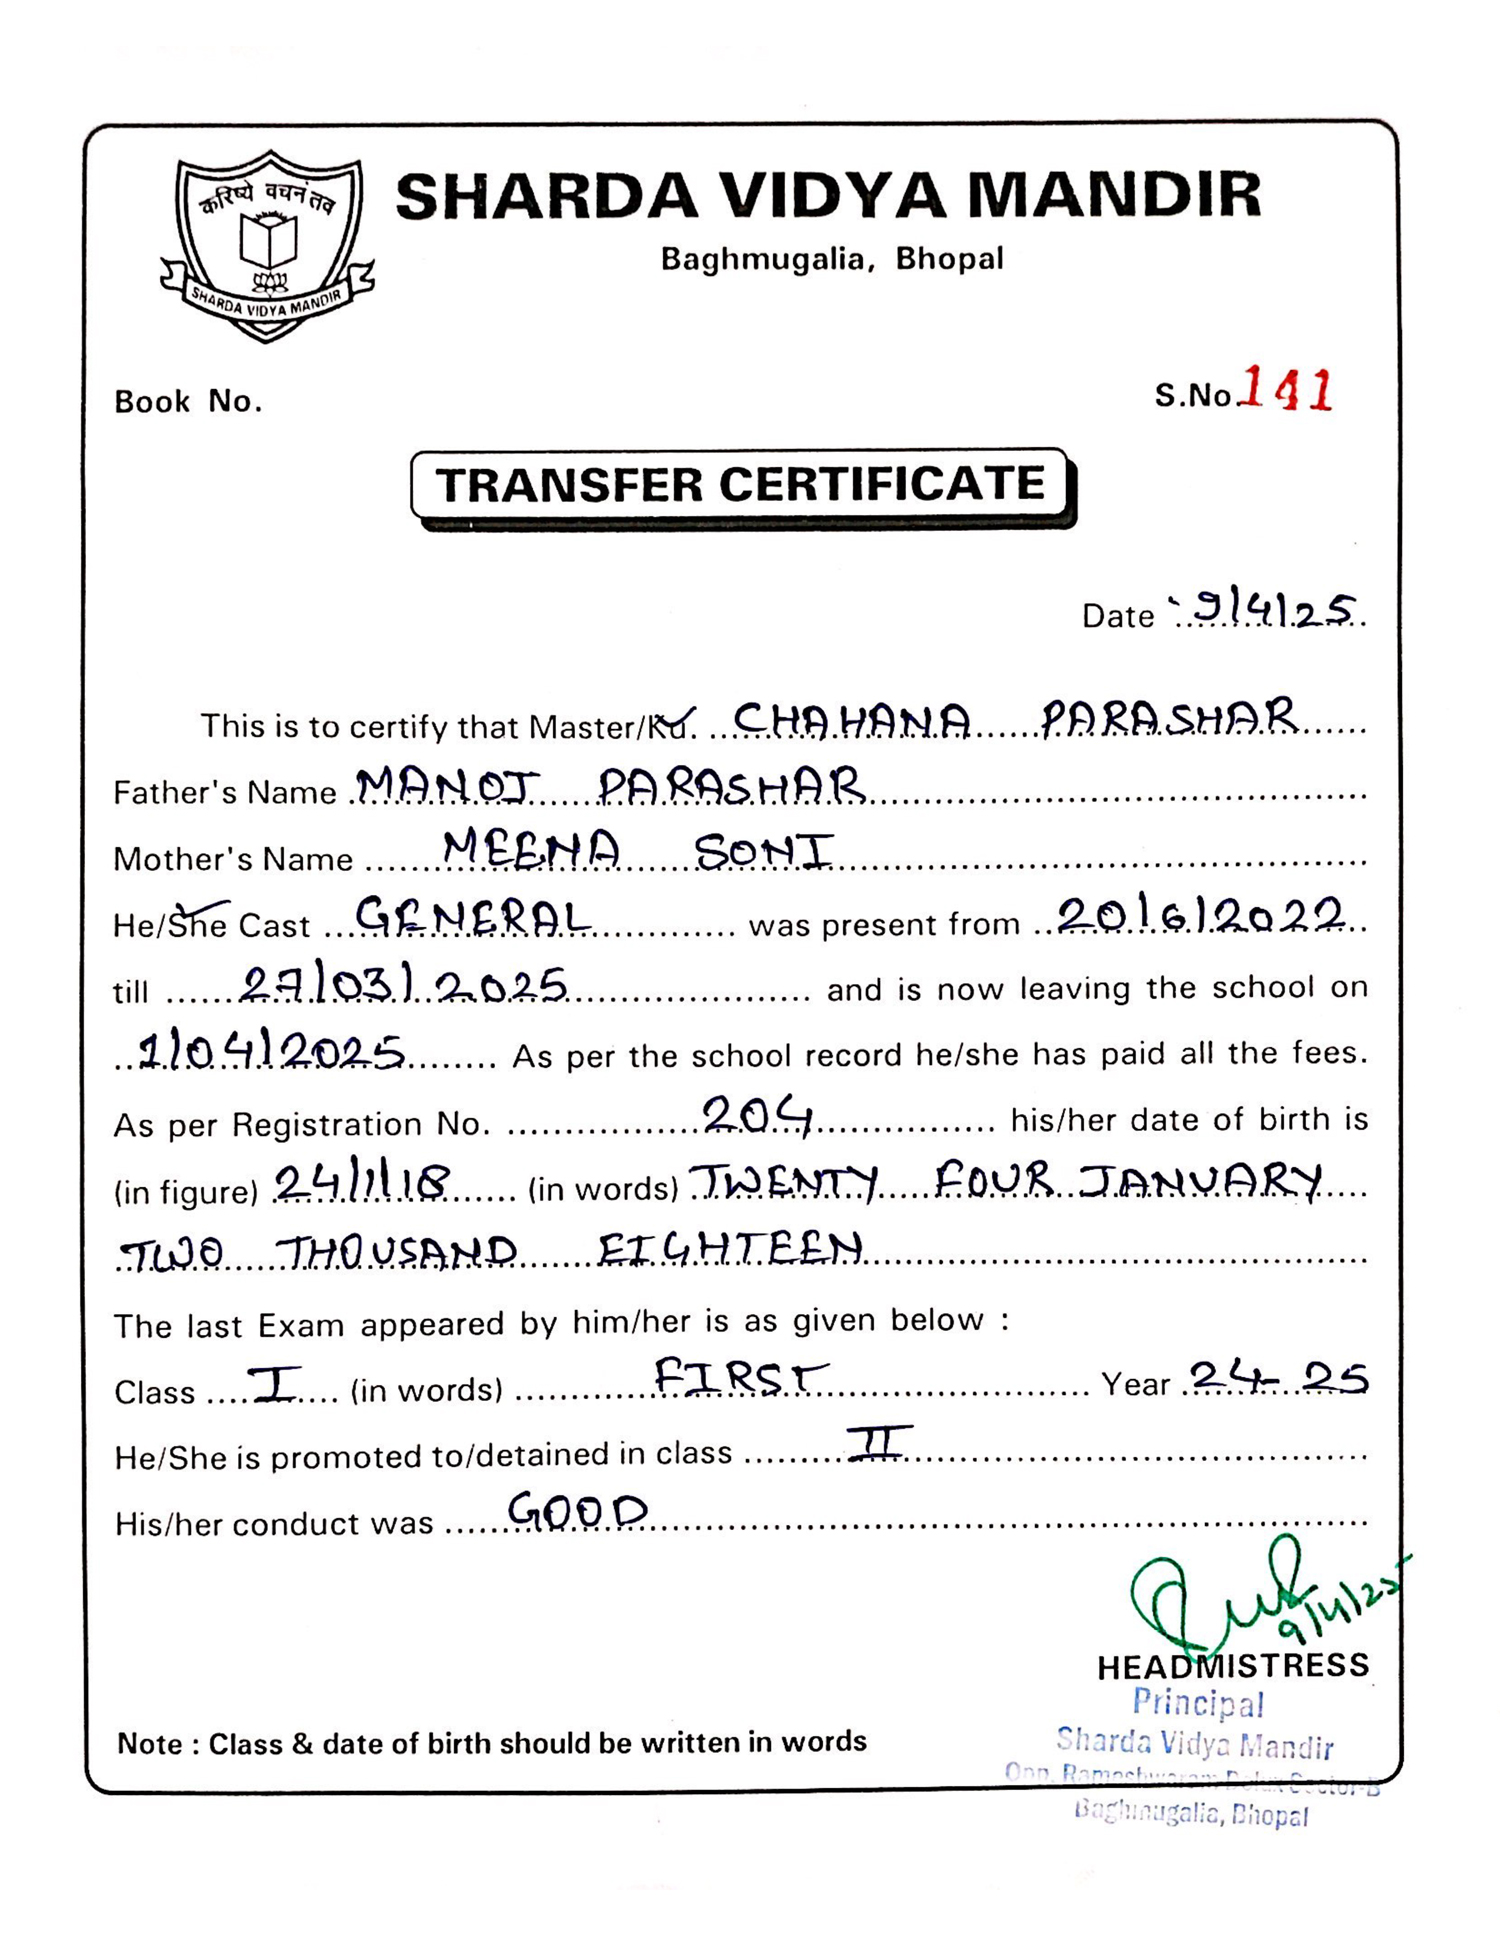 करिष्ये वचनं तव
SHARDA VIDYA MANDIR
SHARDA VIDYA MANDIR
Baghmugalia, Bhopal
Book No.
S.No. 141
TRANSFER CERTIFICATE
Date : 9/4/25
This is to certify that Master/Ku. CHAHANA PARASHAR
Father's Name MANOJ PARASHAR
Mother's Name MEENA SONI
He/She Cast GENERAL was present from 20/6/2022
till 27/03/2025 and is now leaving the school on
1/04/2025 As per the school record he/she has paid all the fees.
As per Registration No. 204 his/her date of birth is
(in figure) 24/1/18 (in words) TWENTY FOUR JANUARY
TWO THOUSAND EIGHTEEN
The last Exam appeared by him/her is as given below :
Class I (in words) FIRST Year 24-25
He/She is promoted to/detained in class II
His/her conduct was GOOD
9/4/25
HEADMISTRESS
Principal
Note : Class & date of birth should be written in words
Sharda Vidya Mandir
Opp. Rameshwaram Sector-B
Baghmugalia, Bhopal